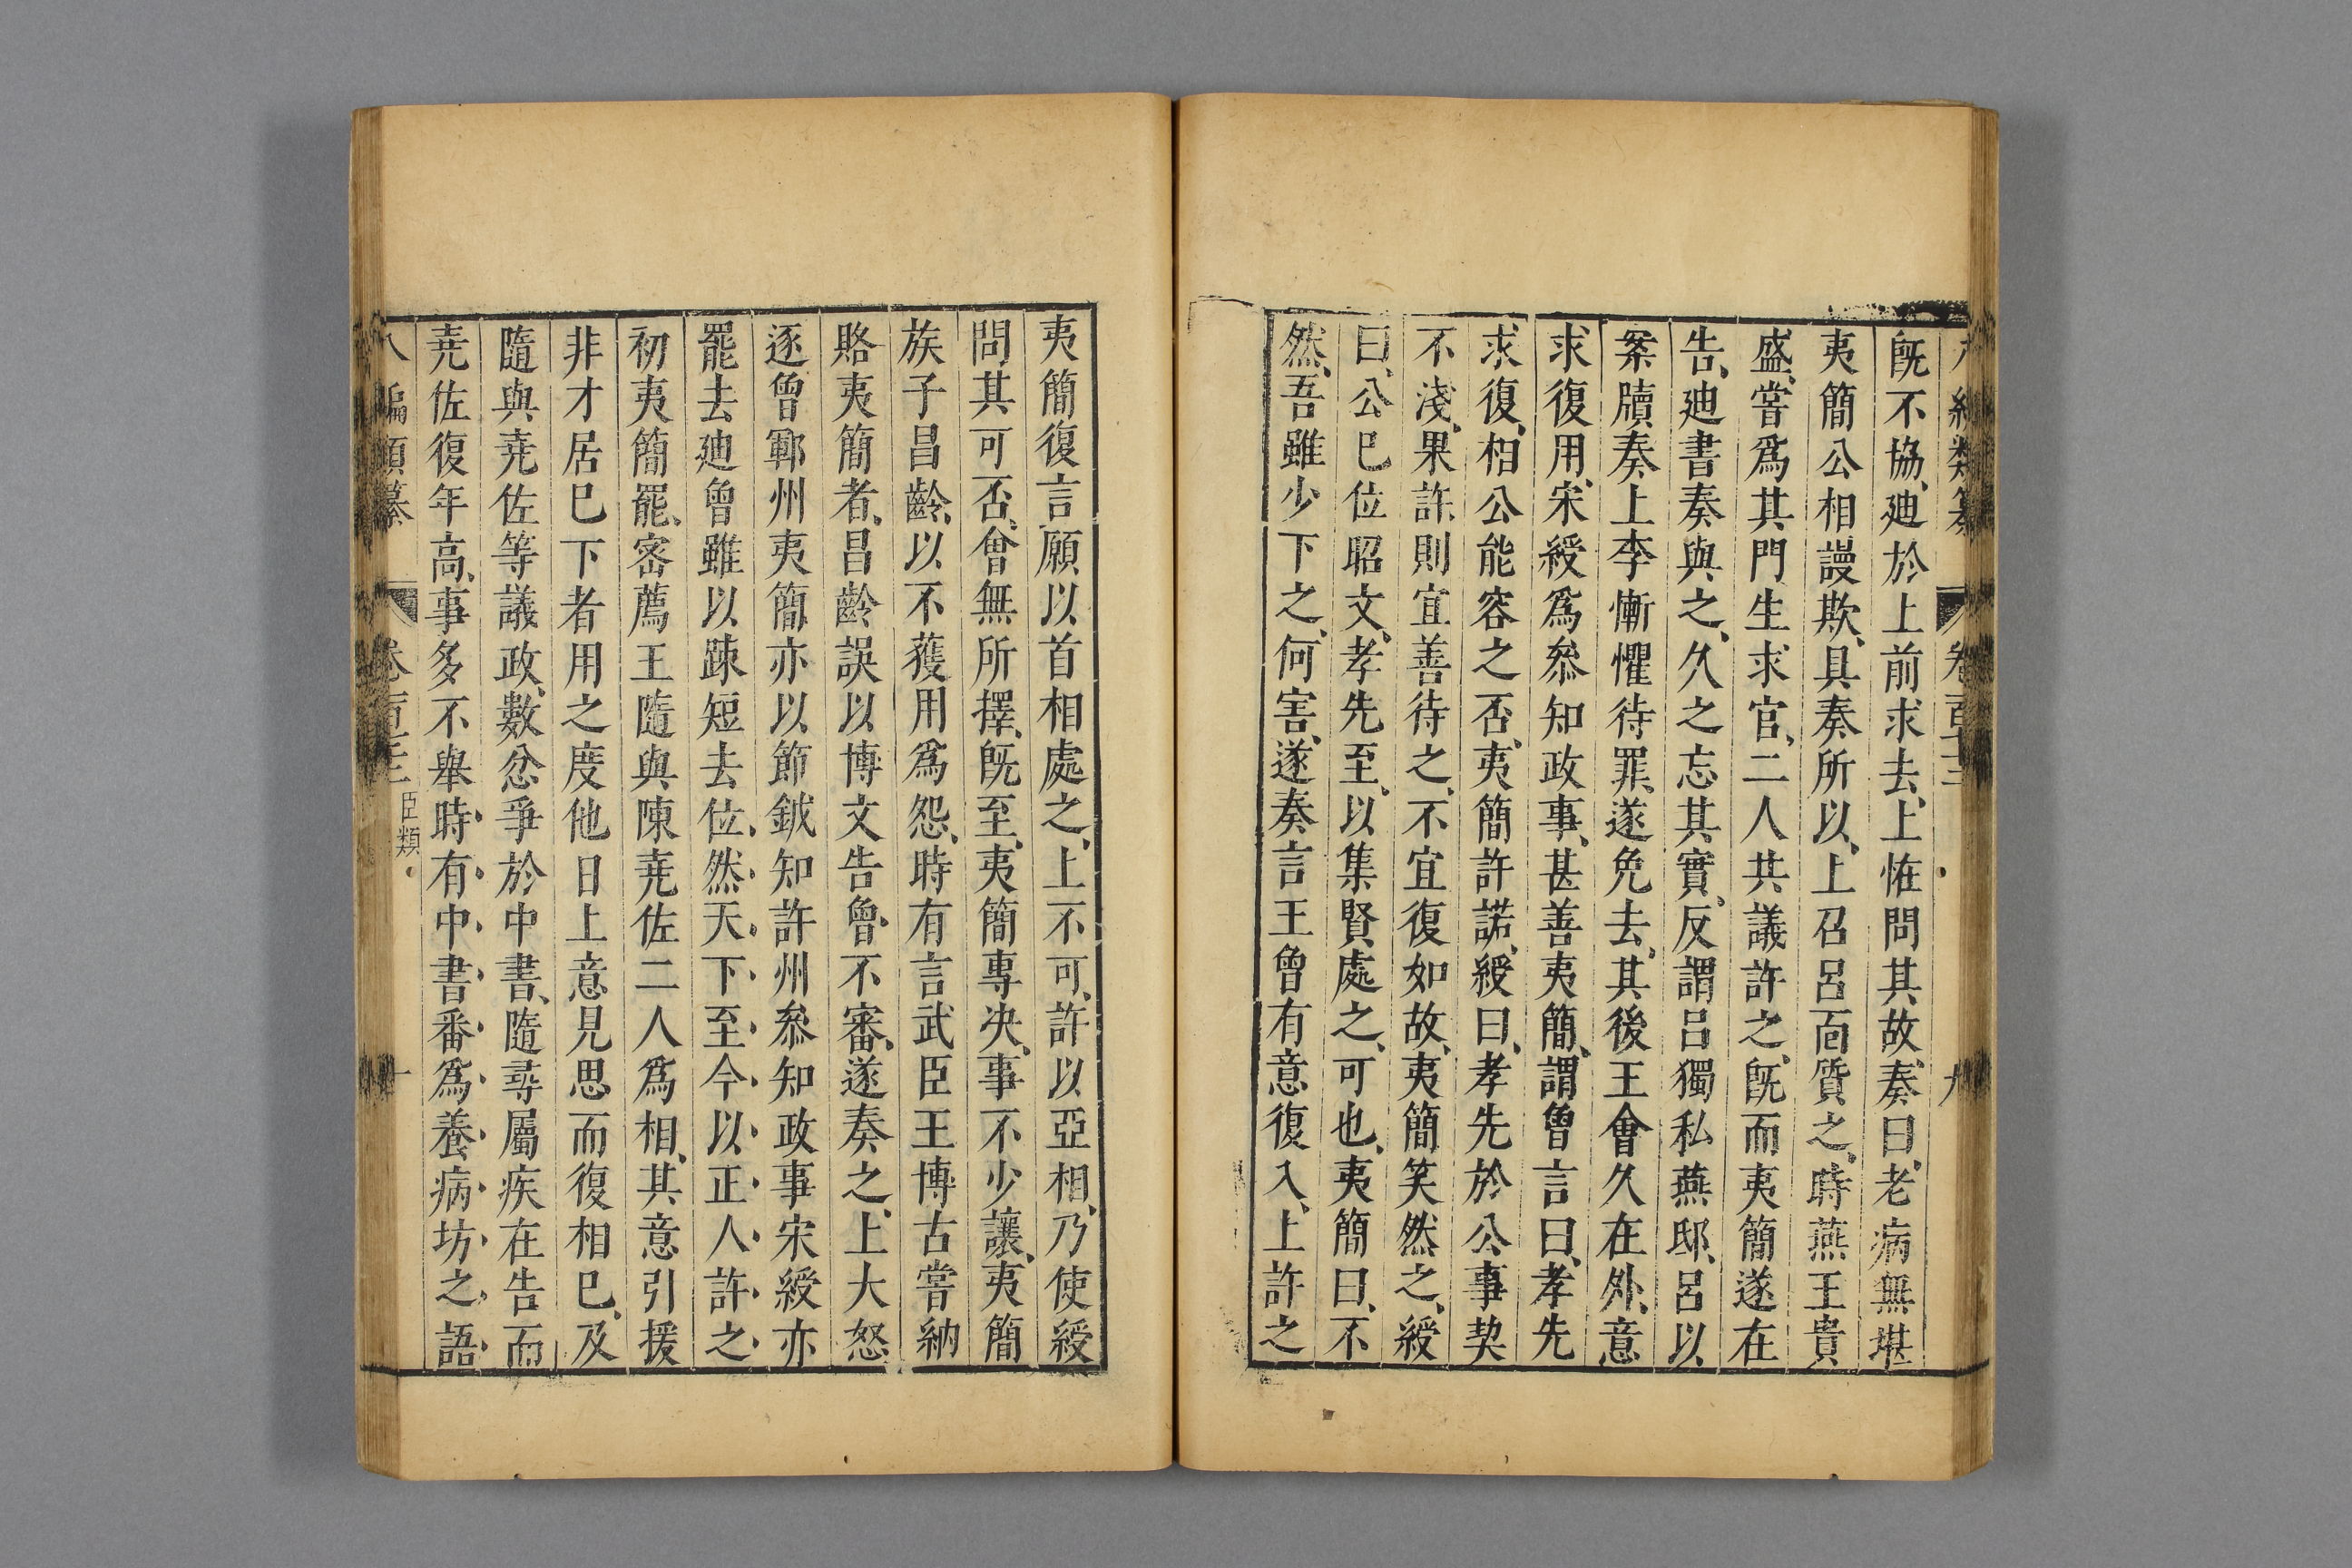 既不協、廸於上前求去、上恠問其故、奏曰、老病無堪
夷簡公相謾欺、具奏所以、上召呂面質之、時燕王貴
盛、嘗爲其門生求官、二人共議許之、旣而夷簡遂在
告、廸書奏與之、久之忘其實、反謂呂獨私燕邸、呂以
案牘奏上李慚懼待罪、遂免去、其後王曾久在外、意
求復用、宋綬爲叅知政事、甚善夷簡、謂曾言曰、孝先
求復、相公能容之否、夷簡許諾、綬曰、孝先於公事契
不淺、果許則宜善待之、不宜復如故、夷簡笑然之、綬
曰、公巳位昭文、孝先至、以集賢處之、可也、夷簡曰、不
然、吾雖少下之、何害、遂奏言王曾有意復入、上許之
夷簡復言願以首相處之、上不可、許以亞相、乃使綬
問其可否、曾無所擇、旣至、夷簡專决、事不少讓、夷簡
族子昌齡、以不獲用爲怨、時有言武臣王博古嘗納
賂夷簡者、昌齡誤以博文告曾、不審、遂奏之、上大怒
逐曾鄆州夷簡亦以節鉞知許州叅知政事宋綬亦
罷去廸曾雖以踈短去位、然天下至今以正人許之
初夷簡罷、宻薦王隨與陳尭佐二人爲相、其意引援
非才居巳下者用之度他日上意見思而復相巳、及
隨與尭佐等議政、數忿爭於中書、隨尋屬疾在告而
尭佐復年高、事多不舉時有中書番爲養病坊之語
八編類纂 卷百三 臣類